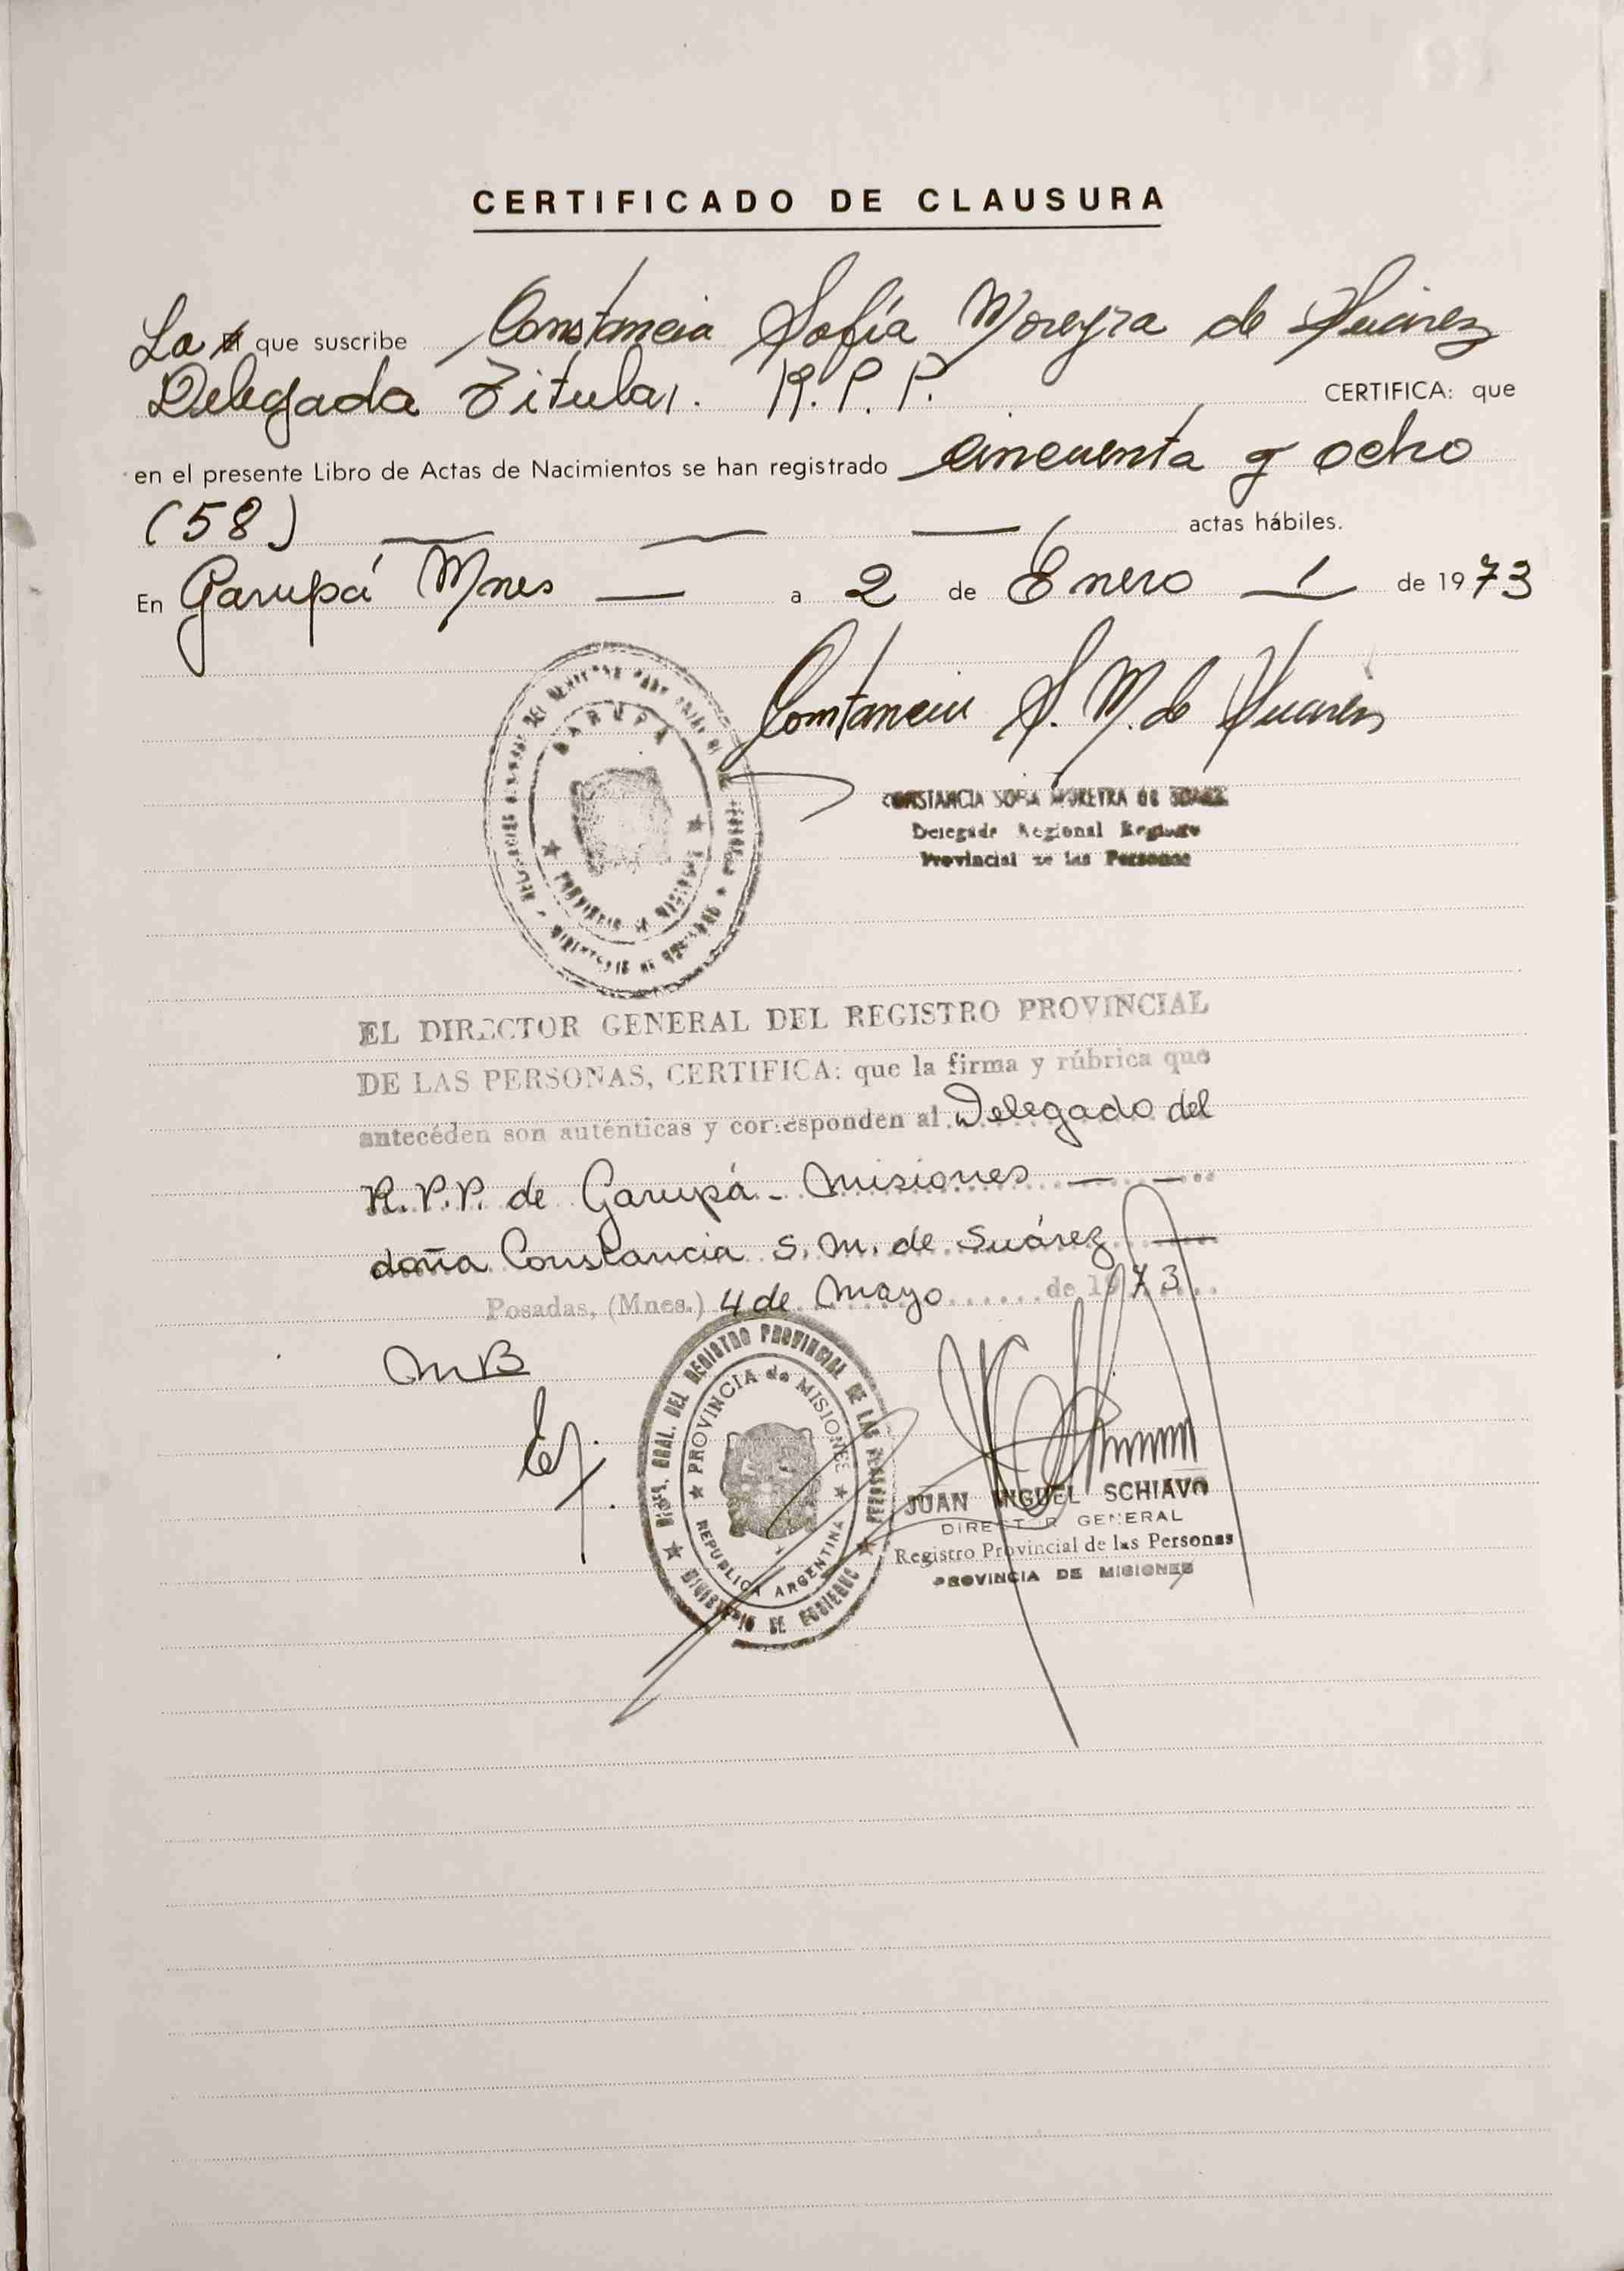 CERTIFICADO DE CLAUSURA
La El que suscribe Constancia Sofía Moreyra de Suárez
Delegada Titular. R.P.P. CERTIFICA: que
en el presente Libro de Actas de Nacimientos se han registrado cincuenta y ocho
(58) actas hábiles.
En Garupá Mnes — a 2 de Enero — de 1973
GARUPA
PROVINCIA DE MISIONES
Constancia S. M. de Suárez
CONSTANCIA SOFIA MOREYRA DE SUAREZ
Delegada Regional Registro
Provincial de las Personas
EL DIRECTOR GENERAL DEL REGISTRO PROVINCIAL
DE LAS PERSONAS, CERTIFICA: que la firma y rúbrica que
anteceden son auténticas y corresponden al Delegado del
R.P.P. de Garupá - Misiones — —
doña Constancia S. M. de Suárez —
Posadas, (Mnes.) 4 de Mayo de 1973
MB
DIREC. GRAL. DEL REGISTRO PROVINCIAL DE LAS PERSONAS
PROVINCIA de MISIONES
REPUBLICA ARGENTINA
MINISTERIO DE GOBIERNO
JUAN MIGUEL SCHIAVO
DIRECTOR GENERAL
Registro Provincial de las Personas
PROVINCIA DE MISIONES